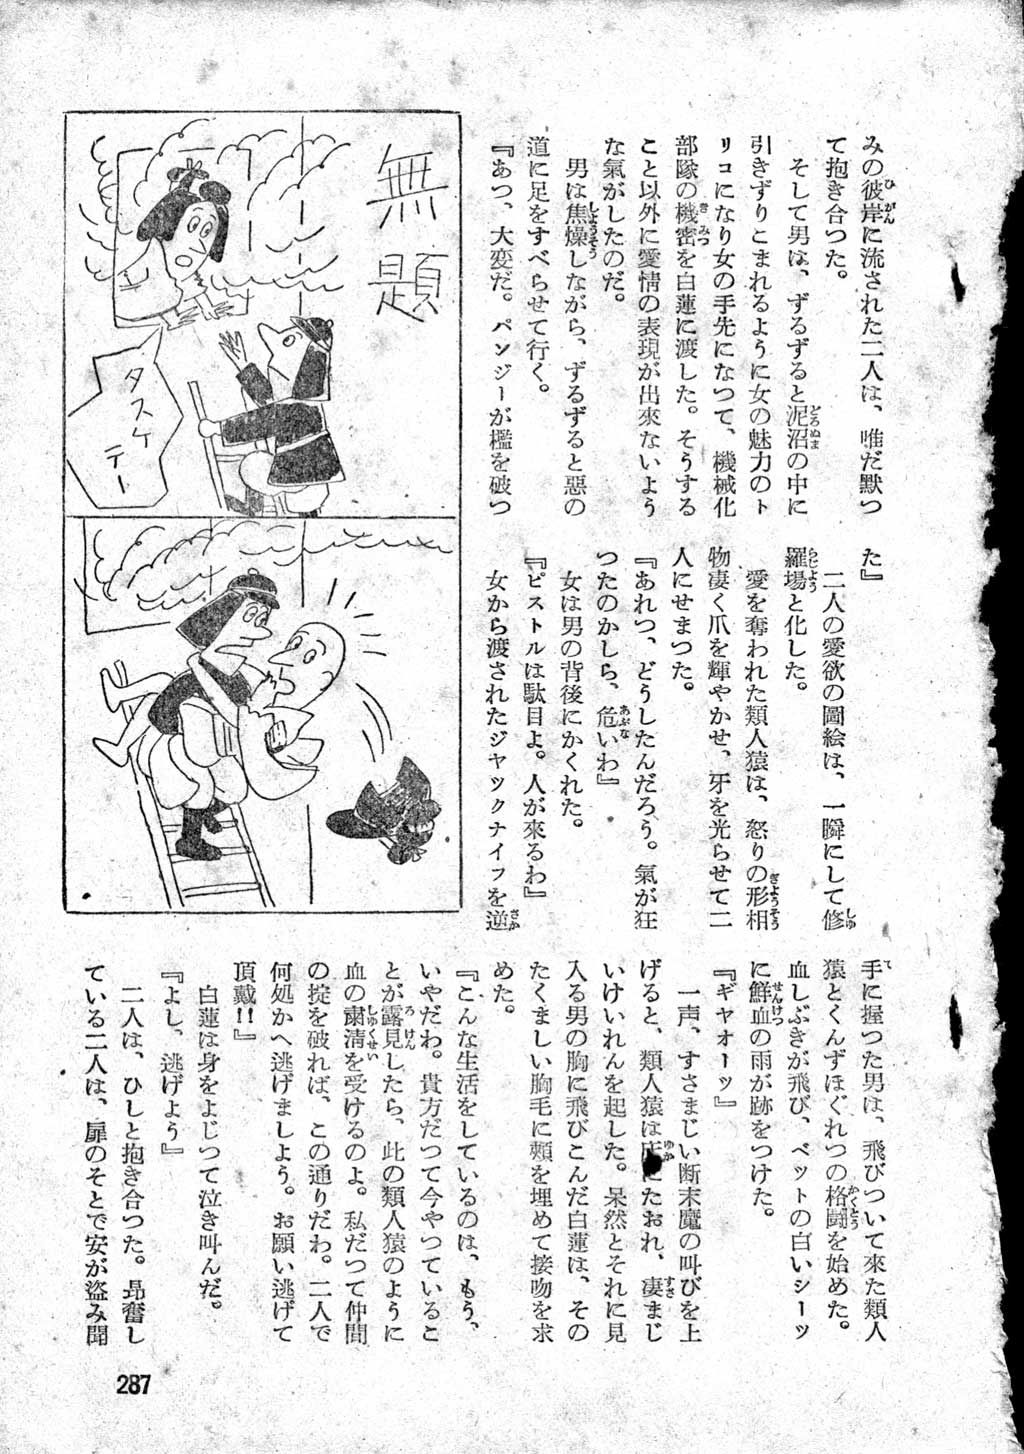 みの彼岸に流された二人は、唯だ默つ
て抱き合つた。
そして男は、ずるずると泥沼の中に
引きずりこまれるように女の魅力のト
リコになり女の手先になつて、機械化
部隊の機密を白蓮に渡した。そうする
こと以外に愛情の表現が出來ないよう
な氣がしたのだ。
男は焦燥しながら、ずるずると惡の
道に足をすべらせて行く。
『あつ、大変だ。パンジーが檻を破つ
た』
二人の愛欲の圖絵は、一瞬にして修
羅場と化した。
愛を奪われた類人猿は、怒りの形相
物凄く爪を輝やかせ、牙を光らせて二
人にせまつた。
『あれつ、どうしたんだろう。氣が狂
つたのかしら、危いわ』
女は男の背後にかくれた。
『ピストルは駄目よ。人が來るわ』
女から渡されたジャックナイフを逆
手に握つた男は、飛びついて来た類人
猿とくんずほぐれつの格闘を始めた。
血しぶきが飛び、ベットの白いシーツ
に鮮血の雨が跡をつけた。
『ギヤオーッ』
一声、すさまじい断末魔の叫びを上
げると、類人猿は床にたおれ、凄まじ
いけいれんを起した。呆然とそれに見
入る男の胸に飛びこんだ白蓮は、その
たくましい胸毛に頰を埋めて接吻を求
めた。
『こんな生活をしているのは、もう、
いやだわ。貴方だつて今やつているこ
とが露見したら、此の類人猿のように
血の粛清を受けるのよ。私だつて仲間
の掟を破れば、この通りだわ。二人で
何処かへ逃げましよう。お願い逃げて
頂戴!!』
白蓮は身をよじつて泣き叫んだ。
『よし、逃げよう』
二人は、ひしと抱き合つた。昂奮し
ている二人は、扉のそとで安が盗み聞
無題
タスケ
テー
287